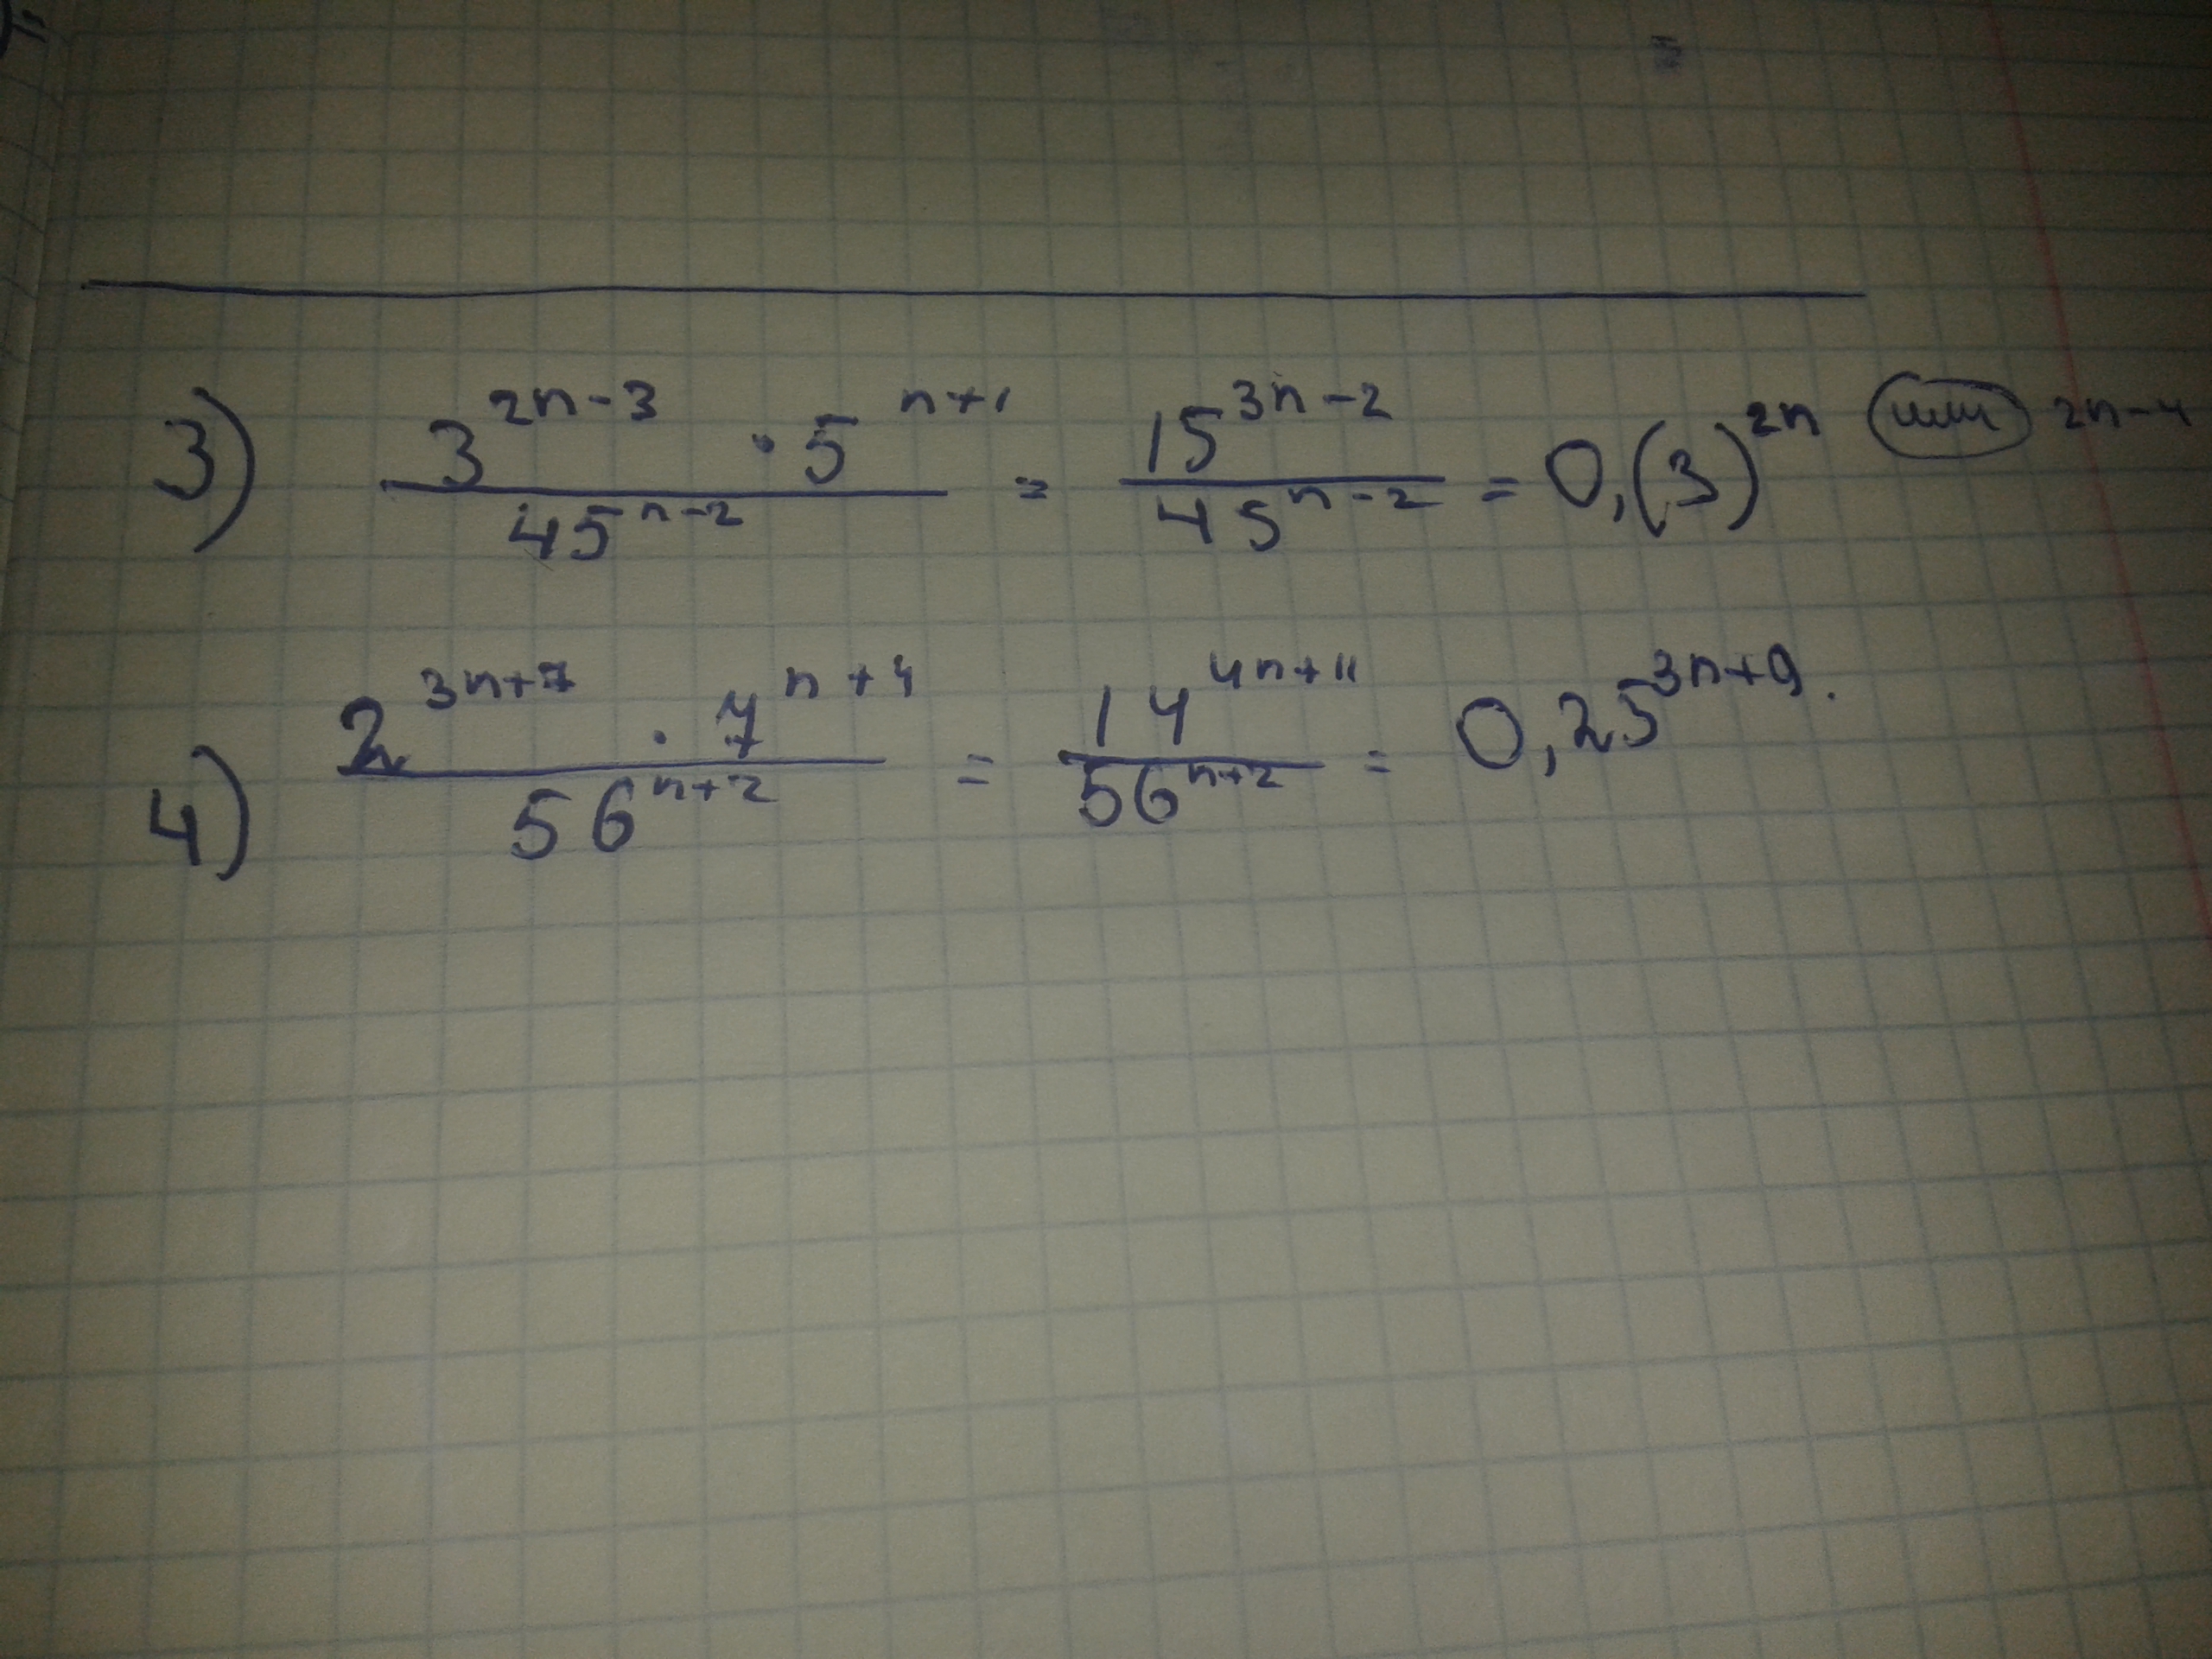 3) 3^{2n-3} · 5^{n+1} / 45^{n-2} = 15^{3n-2} / 45^{n-2} = 0,(3)^{2n} или 2n-4
4) 2^{3n+7} · 7^{n+4} / 56^{n+2} = 14^{4n+11} / 56^{n+2} = 0,25^{3n+9}.